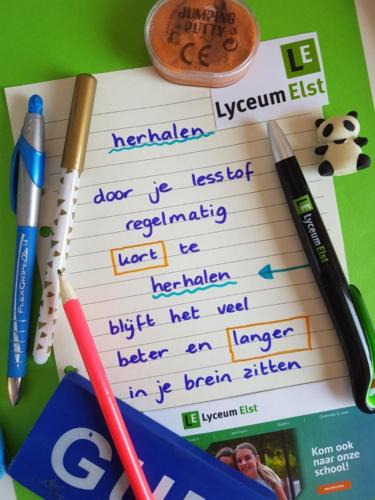 JUMPING
PUTTY
CE
LE
Lyceum Elst
herhalen
door je lesstof
regelmatig
kort te
herhalen
blijft het veel
beter en langer
in je brein zitten
FLEXGRIP
LE Lyceum Elst
LE Lyceum Elst
Kom ook
naar onze
school!